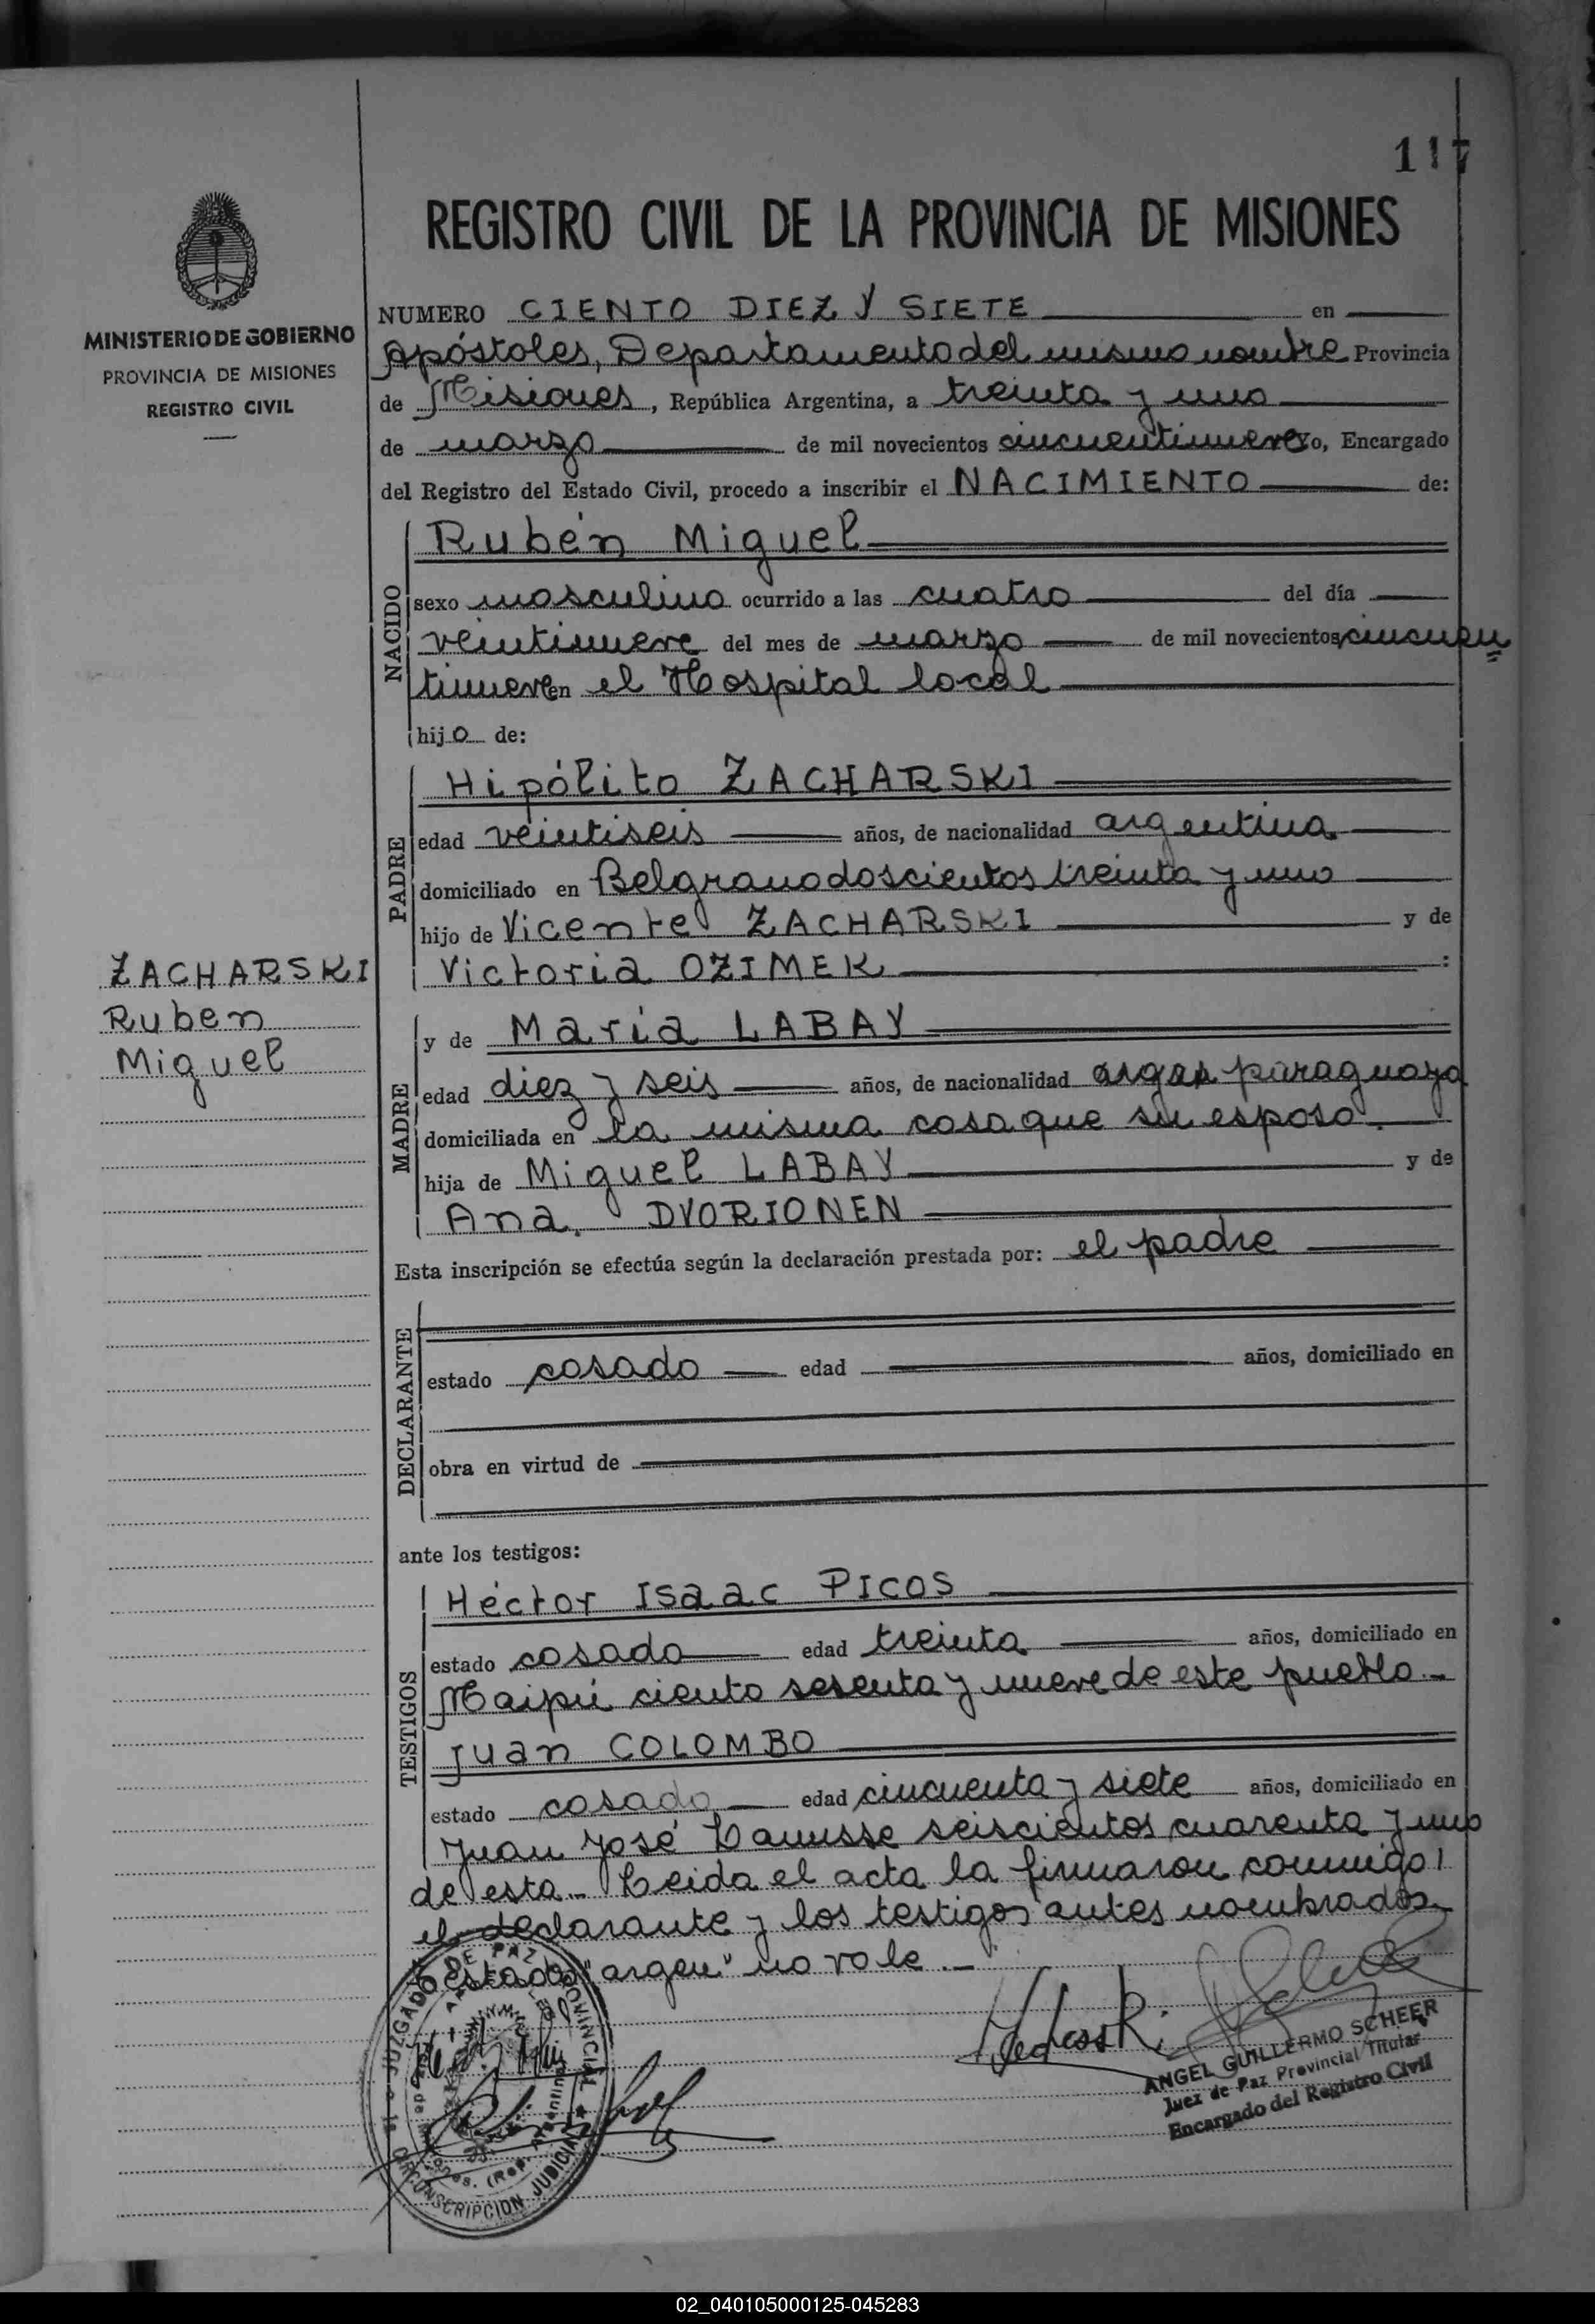 117
REGISTRO CIVIL DE LA PROVINCIA DE MISIONES
MINISTERIO DE GOBIERNO
PROVINCIA DE MISIONES
REGISTRO CIVIL
NUMERO CIENTO DIEZ Y SIETE en
Apóstoles, Departamento del mismo nombre Provincia
de Misiones, República Argentina, a treinta y uno
de marzo de mil novecientos cincuentinueve Yo, Encargado
del Registro del Estado Civil, procedo a inscribir el NACIMIENTO de:
NACIDO
Rubén Miguel
sexo masculino ocurrido a las cuatro del día
veintinueve del mes de marzo de mil novecientos cincuen
tinueve en el Hospital local
hijo de:
PADRE
Hipólito ZACHARSKI
edad veintiseis años, de nacionalidad argentina
domiciliado en Belgrano doscientos treinta y uno
hijo de Vicente ZACHARSKI y de
Victoria OZIMEK :
ZACHARSKI
Ruben
Miguel
MADRE
y de María LABAY
edad diez y seis años, de nacionalidad argen paraguaya
domiciliada en la misma casa que su esposo.
hija de Miguel LABAY y de
Ana. DVORIONEN
Esta inscripción se efectúa según la declaración prestada por: el padre
DECLARANTE
estado casado edad años, domiciliado en
obra en virtud de
ante los testigos:
TESTIGOS
Héctor Isaac PICOS
estado casado edad treinta años, domiciliado en
Maipú ciento sesenta y nueve de este pueblo.-
Juan COLOMBO
estado casado edad cincuenta y siete años, domiciliado en
Juan José Lanusse seiscientos cuarenta y uno
de esta.- Leida el acta la firmaron conmigo,
el declarante y los testigos antes nombrados.
Testado "argen" no vale.-
JUZGADO DE PAZ PROVINCIAL
CIRCUNSCRIPCION JUDICIAL
ANGEL GUILLERMO SCHEER
Juez de Paz Provincial Titular
Encargado del Registro Civil
02_040105000125-045283